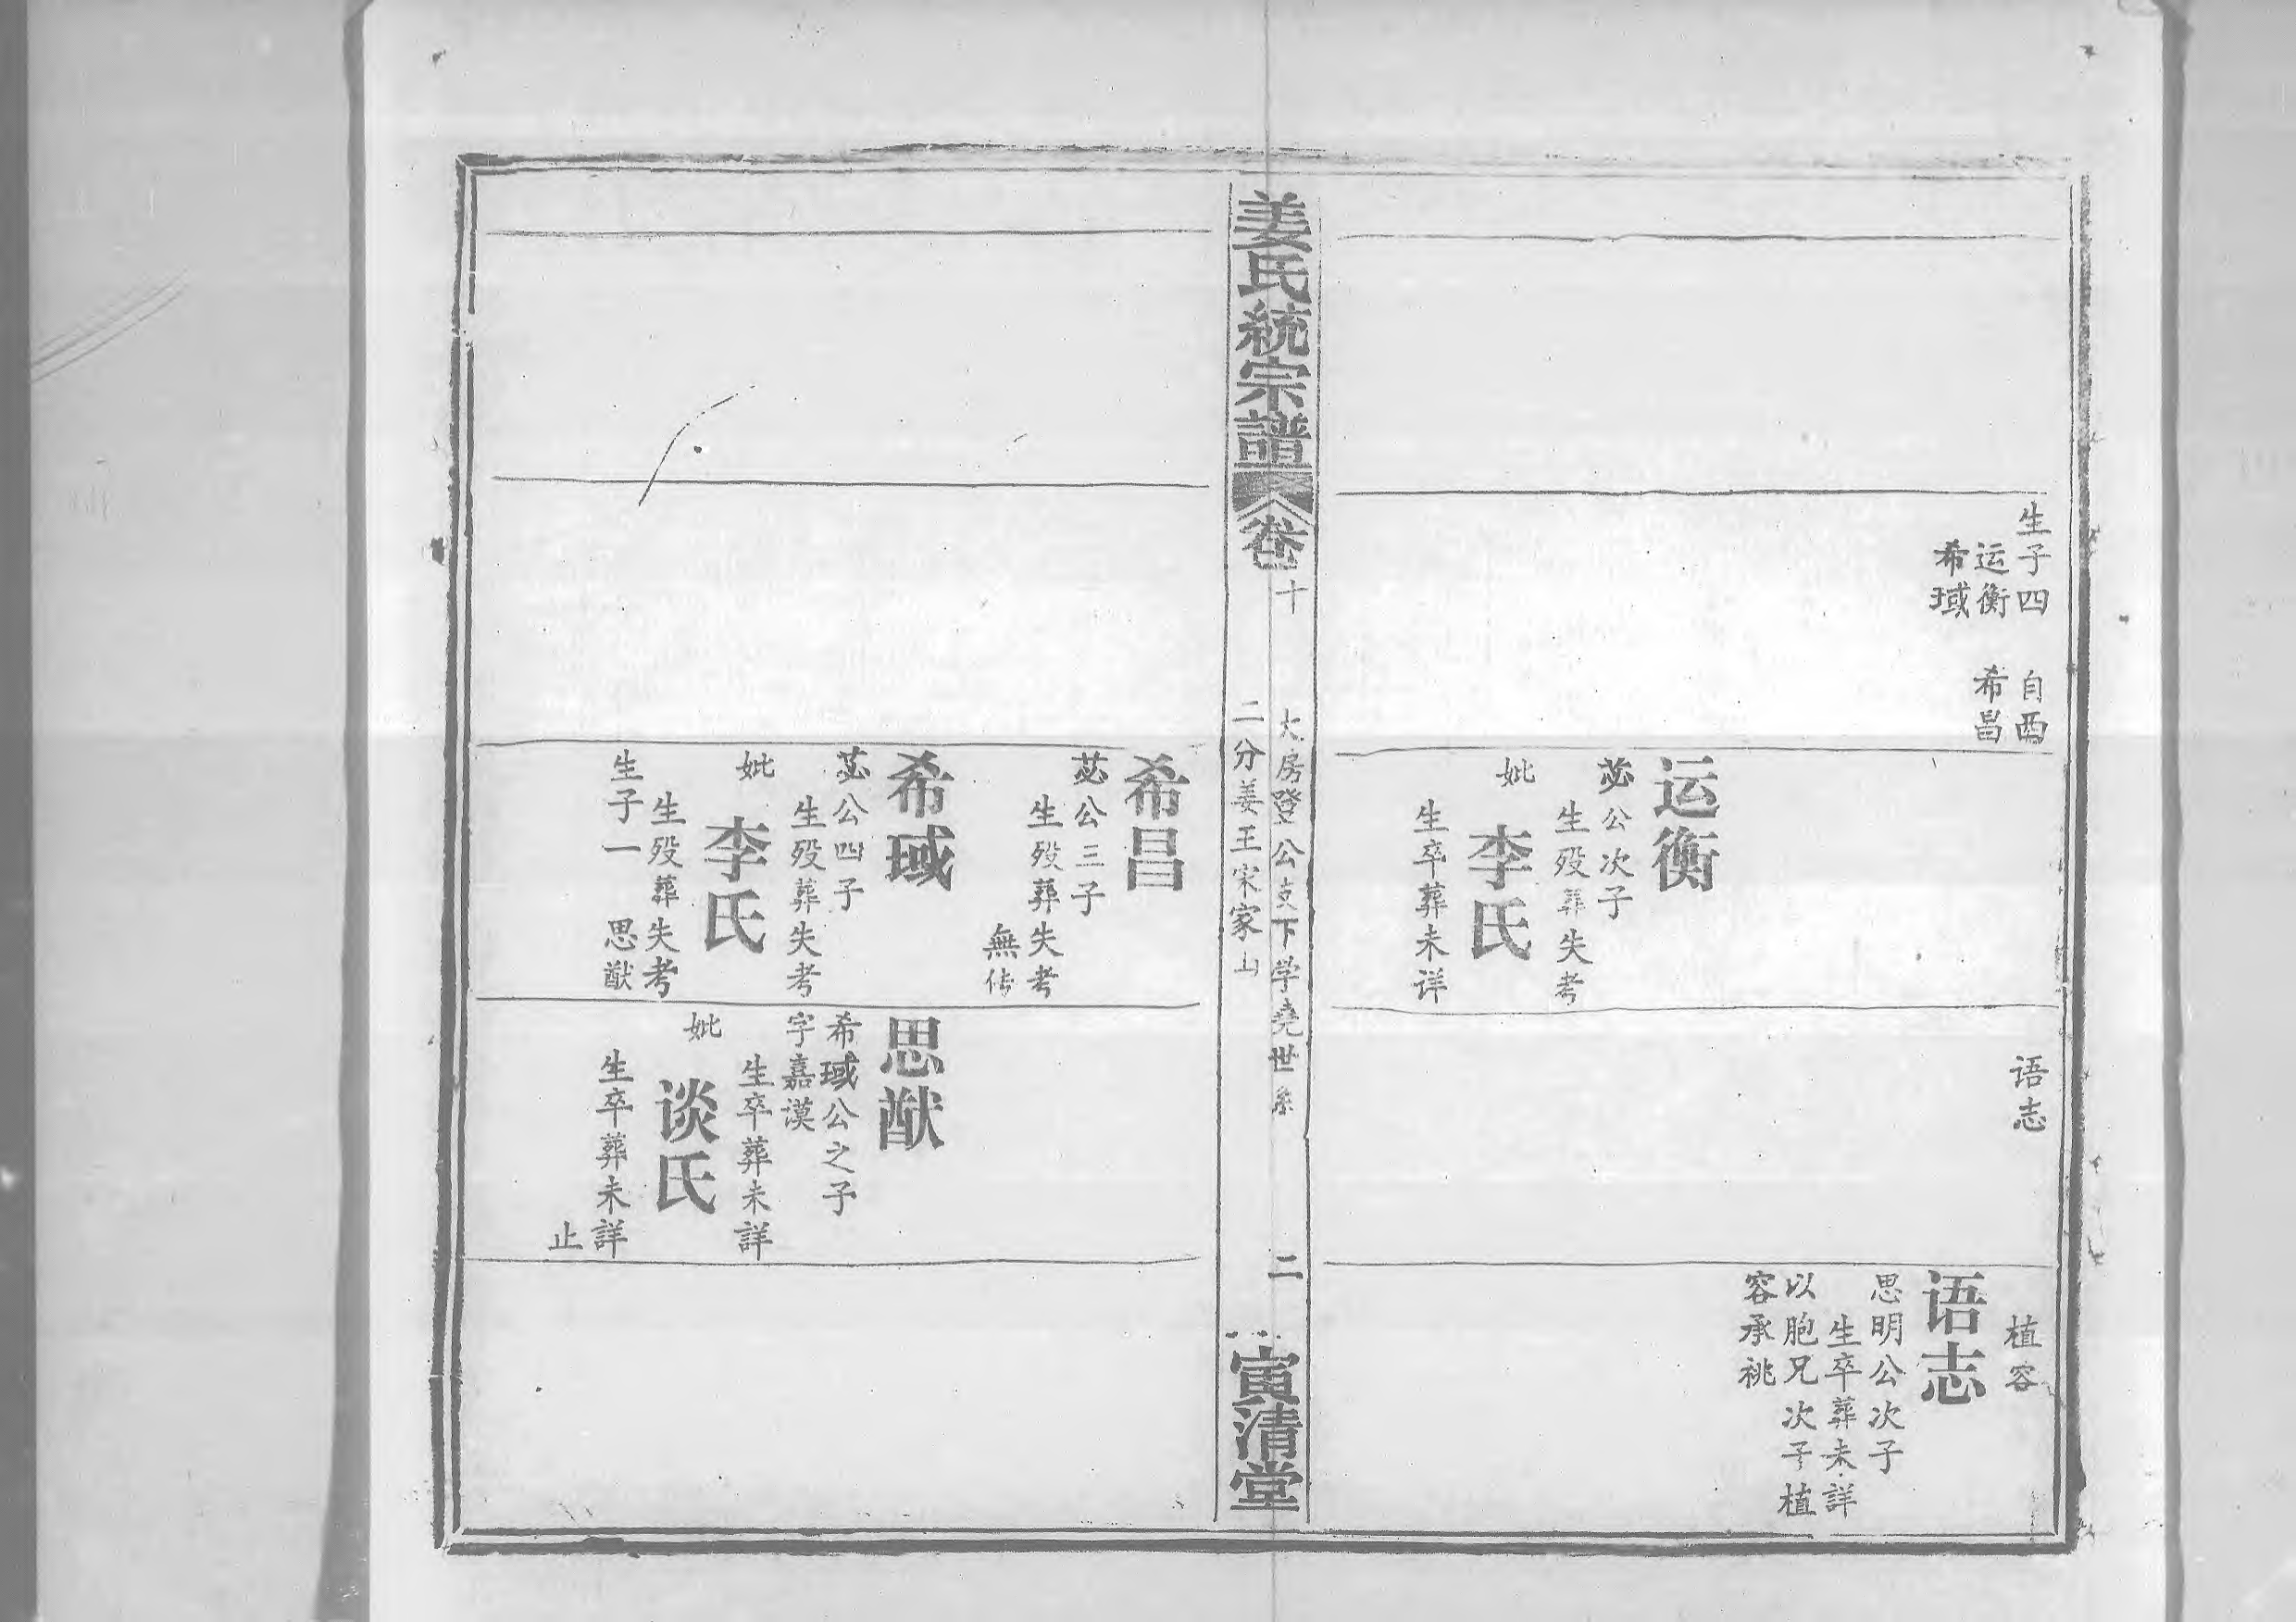 生子四　自酉
运衡　希昌
希琙
运衡
苾公次子
生殁葬失考
妣
李氏
生卒葬未详
语志
植容
语志
思明公次子
生卒葬未詳
以胞兄次子植
容承祧
姜氏統宗譜
卷十
大房登公支下学堯世系
二分姜王宋家山
二
寅清堂
希昌
苾公三子
生殁葬失考
無传
希琙
苾公四子
生殁葬失考
妣
李氏
生殁葬失考
生子一　思猷
思猷
希琙公之子
字嘉谟
生卒葬未詳
妣
谈氏
生卒葬未詳
止